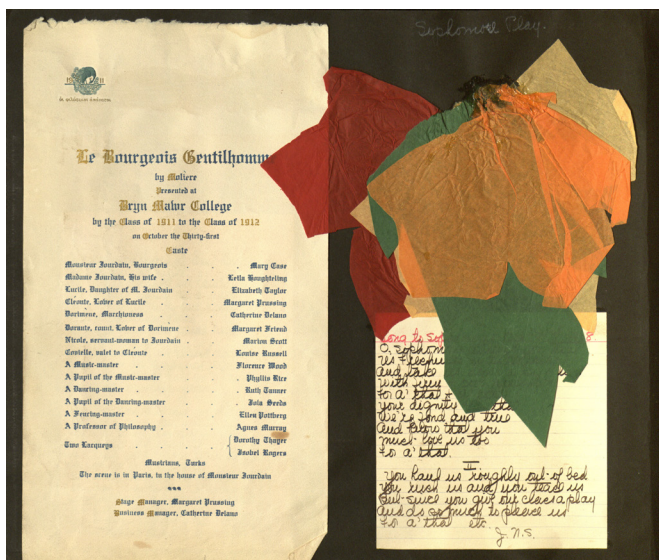 Sophomore Play.
Le Bourgeois Gentilhomm
by Moliere
Presented at
Bryn Mawr College
by the Class of 1911 to the Class of 1912
on October the Thirty-first
Caste
Monsieur Jourdain, Bourgeois . . Mary Case
Madame Jourdain, His wife . . . Leila Houghteling
Lucile, Daughter of M. Jourdain . Elizabeth Taylor
Cleonte, Lover of Lucile . . Margaret Prussing
Dorimene, Marchioness . . Catherine Delano
Dorante, count, Lover of Dorimene . Margaret Friend
Nicole, servant-woman to Jourdain . Marion Scott
Covielle, valet to Cleonte . . Louise Russell
A Music-master . . . Florence Wood
A Pupil of the Music-master . . Phyllis Rice
A Dancing-master . . . Ruth Tanner
A Pupil of the Dancing-master . Iola Seeds
A Fencing-master . . . Ellen Pottberg
A Professor of Philosophy . . Agnes Murray
Two Lacqueys . . . { Dorothy Thayer
Isobel Rogers
Musicians, Turks
The scene is in Paris, in the house of Monsieur Jourdain
***
Stage Manager, Margaret Prussing
Business Manager, Catherine Delano
Song to Sop
O, Sophom
Us Freshm
and take
with very
For a' that
your dignity
We're fond and true
and know that you
much love us too
For a' that.
II
You haul us roughly out of bed
You rush us and you tease us
But since you give our class a play
and do so much to please us
For a' tha etc.
J. N. S.